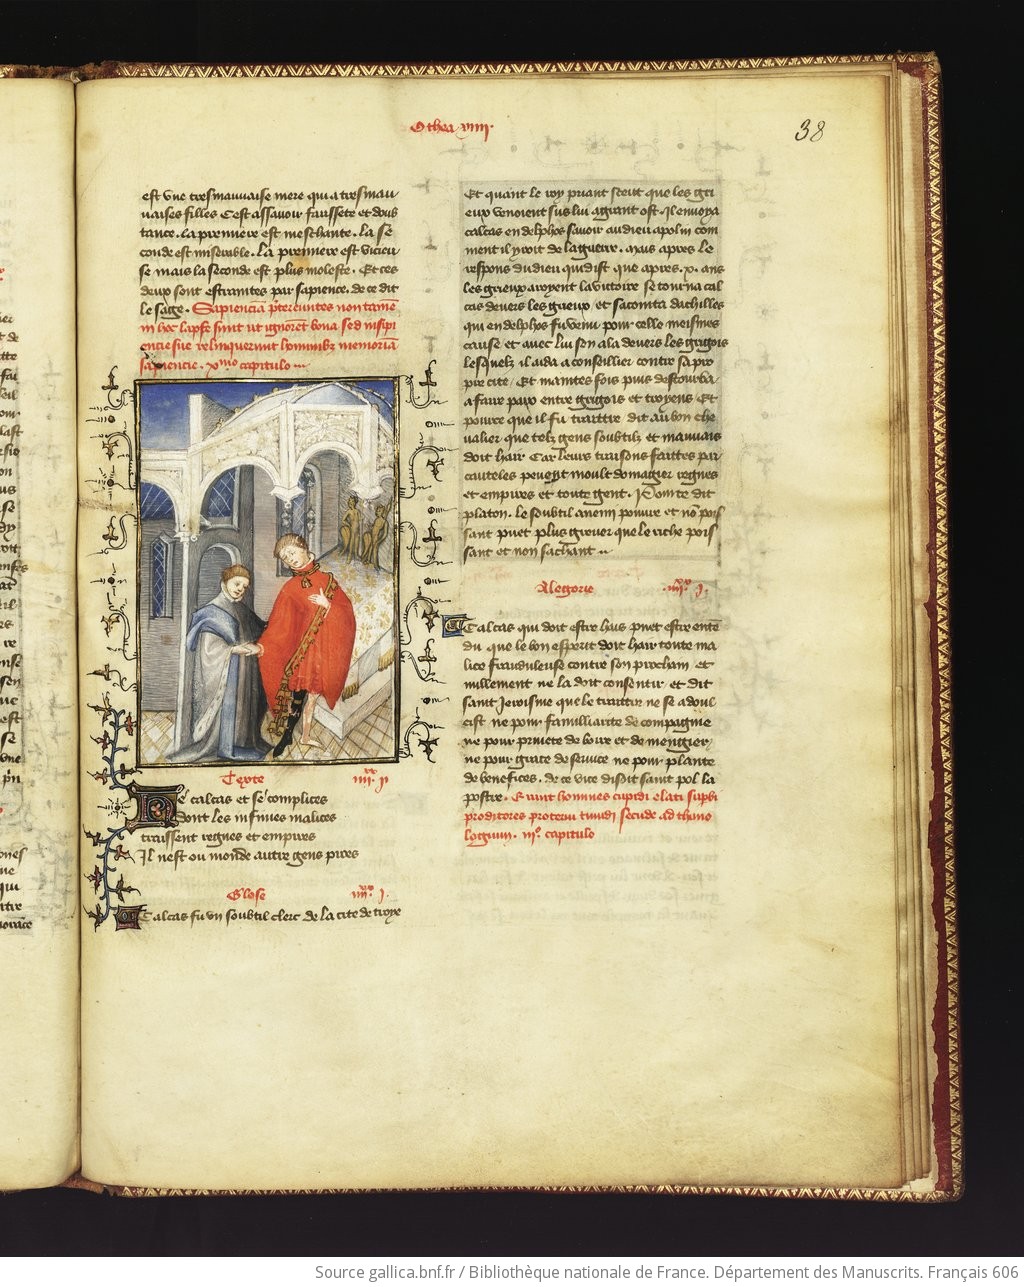 Othea viiii.
38
est vne tresmauuaise mere qui a tresmau
uaises filles Cest assauoir faussete et doub
tance. La premiere est meschante. La se
conde est miserable. La premiere est vicieu
se mais la seconde est plus moleste. Et ces
deux sont estraintes par sapience. de ce dit
le sage. Sapiencia pretereuntes non tame
in hoc lapsi sunt ut ignoret bona sed insipi
encie sue relinquerunt hominibz memoria
sapiencie. xmo capitulo
Texte iiii.xx j
Ne calcas et se complices
Dont les infinies malices
traissent regnes et empires
Il nest ou monde autre gens pires
Glose iiii.xx j.
Calcas fu vn soubtil clerc de la cite de troye
Et quant le roy priant sceut que les gri
eux venoient sus lui agrant ost. Il enuoya
calcas en delphos sauoir au dieu apolin com
ment il yroit de la guerre. Mais apres le
respons du dieu qui dist que apres .x. ans
les grieux aroyent la victoire se tourna cal
cas deuers les grieux et sacointa dachilles
qui en delphos fu venu pour celle meismes
cause et auec lui sen ala deuers les gregois
lesquelz il aida a conseillier contre sa pro
pre cite. Et maintes fois puis destourba
a faire paix entre gregois et troyens. Et
pource que il fu traittre dit au bon che
ualier que telz gens soubtilz et mauuais
doit hair Car leurs traisons faittes par
cauteles peuent moult domagier regnes
et empires et toute gent. Pour ce dit
platon. le soubtil anemi poure et no pois
sant puet plus greuer que le riche pois
sant et non sachant
Alegorie iiii.xx j.
Calcas qui doit estre hais puet estre ente
du que le bon esperit doit hair toute ma
lice frauduleuse contre son prochain et
nullement ne la doit consentir et dit
saint Jeroisme que le traittre ne se adoul
cist ne pour familliarite de compagnie
ne pour priuete de boire et de mengier
ne pour grace de seruice ne pour plante
de benefices. de ce vice disoit saint pol la
postre. Erunt homines cupidi elati supbi
proditores proterui tumidi secude ad thimo
logium. iijo. capitulo
Source gallica.bnf.fr / Bibliothèque nationale de France. Département des Manuscrits. Français 606